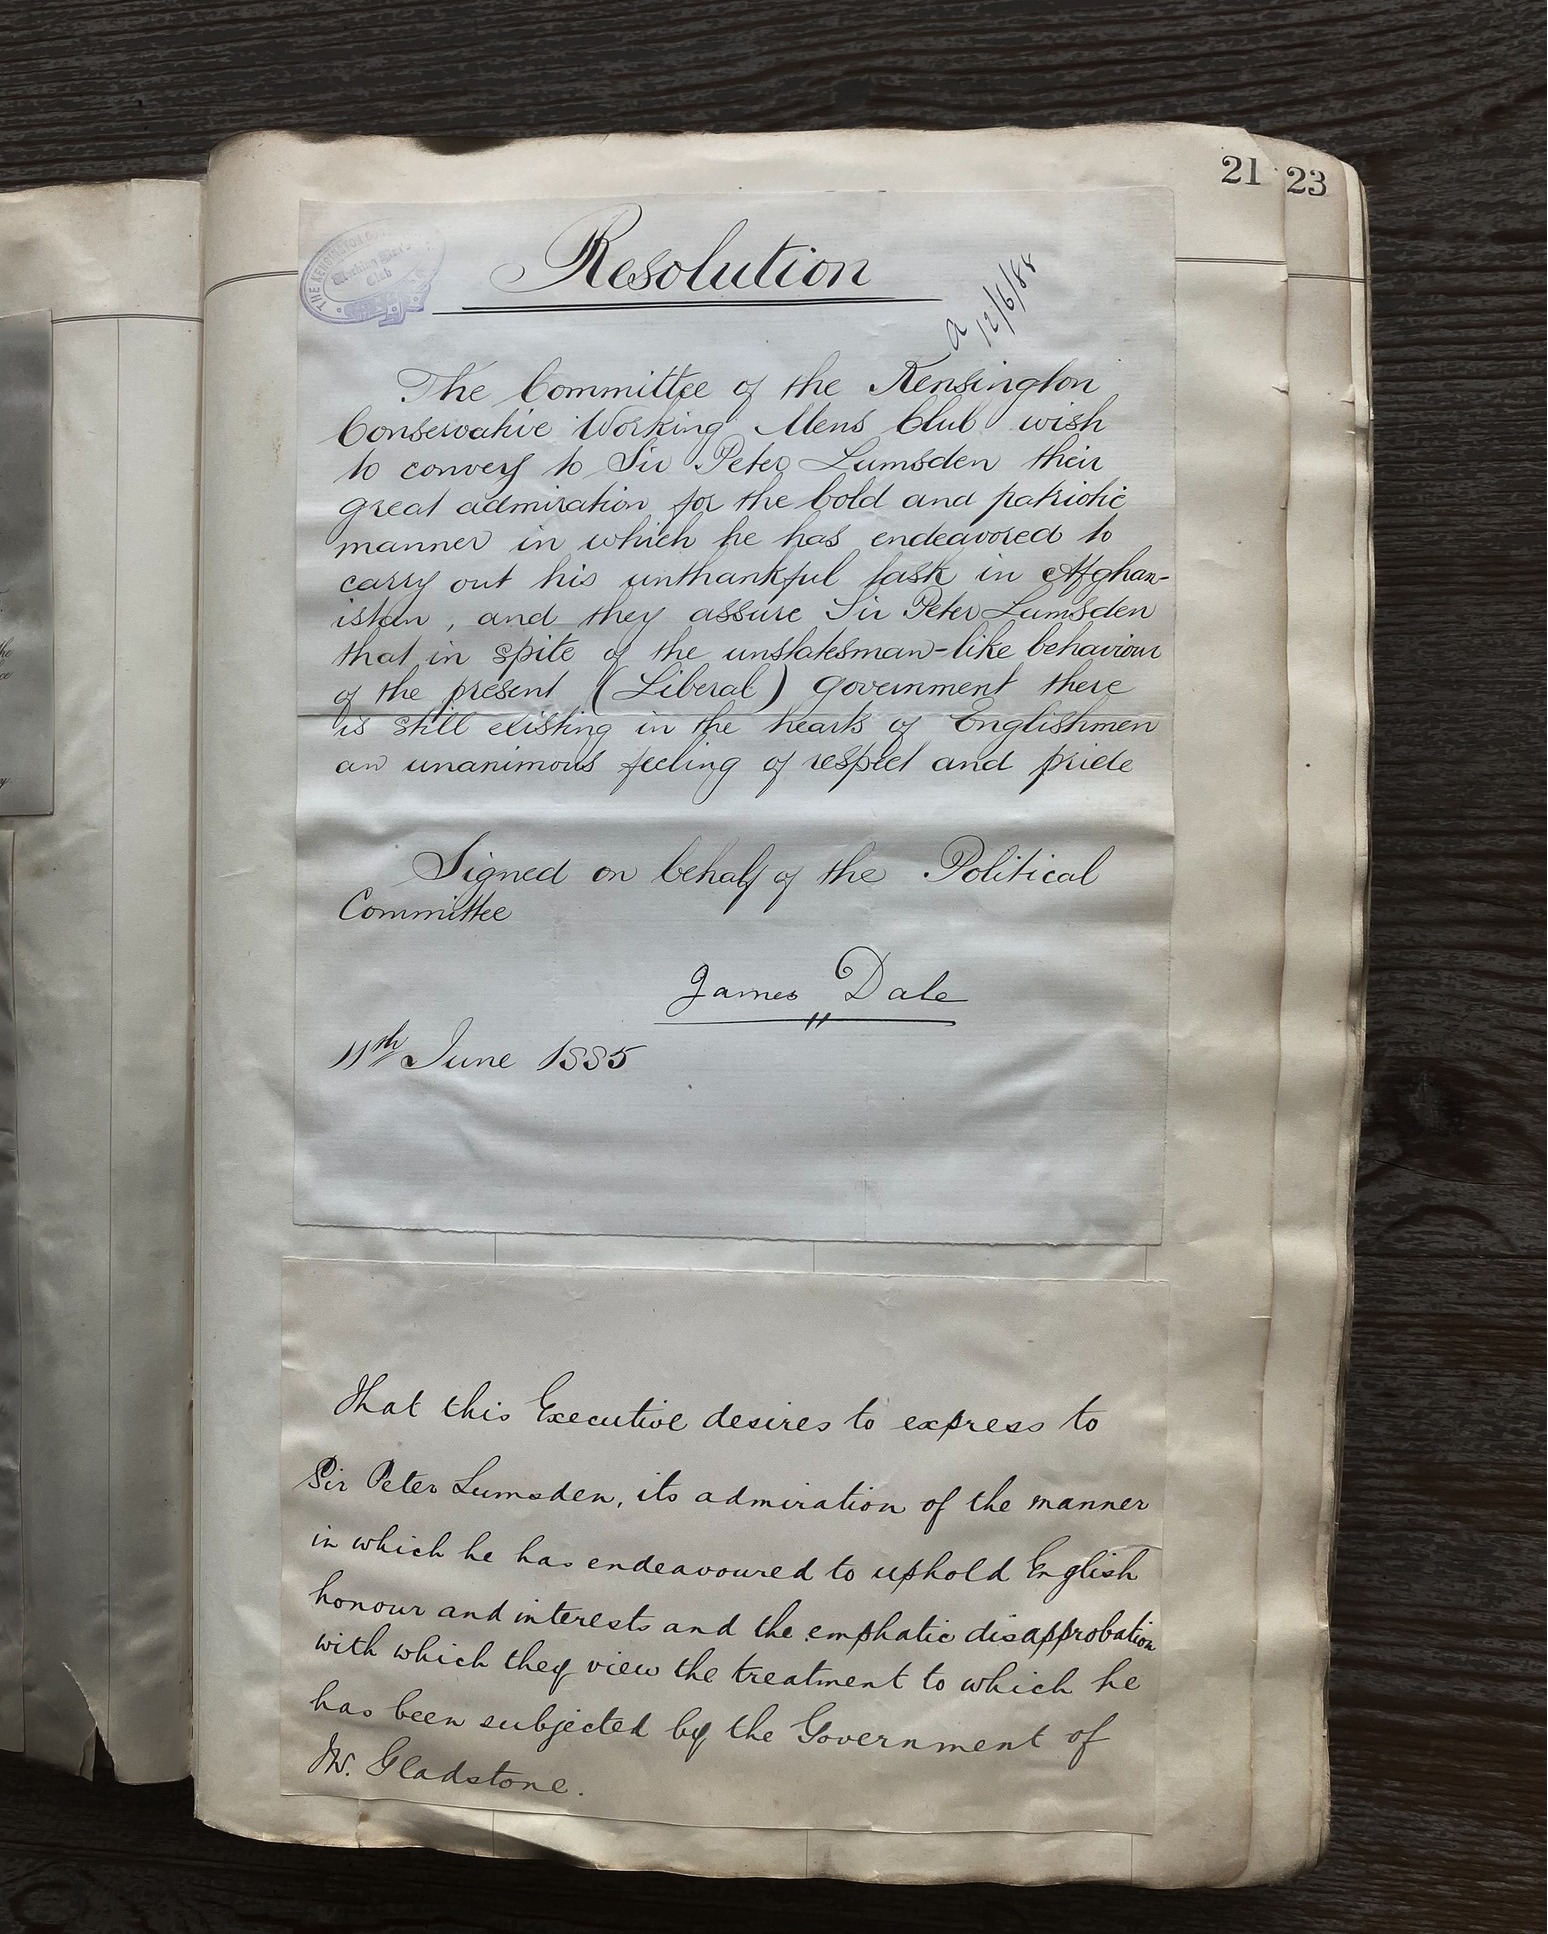 21 23
THE KENSINGTON
Working Men's
Club
Resolution
a 12/6/85
The Committee of the Kensington
Conservative Working Mens Club wish
to convey to Sir Peter Lumsden their
great admiration for the bold and patriotic
manner in which he has endeavored to
carry out his unthankful task in Afghan-
istan, and they assure Sir Peter Lumsden
that in spite of the unstatesman-like behaviour
of the present (Liberal) government there
is still existing in the hearts of Englishmen
an unanimous feeling of respect and pride
Signed on behalf of the Political
Committee
James Dale
11th June 1885
That this Executive desires to express to
Sir Peter Lumsden, its admiration of the manner
in which he has endeavoured to uphold English
honour and interests and the emphatic disapprobation
with which they view the treatment to which he
has been subjected by the Government of
Mr. Gladstone.